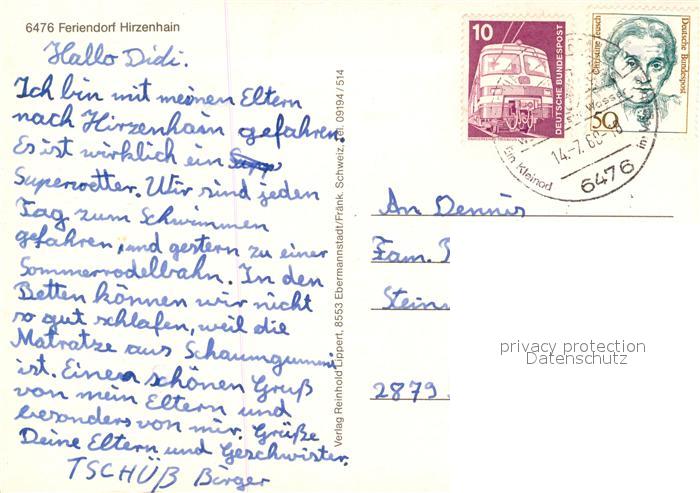 6476 Feriendorf Hirzenhain
Hallo Didi.
Ich bin mit meinen Eltern
nach Hirzenhain gefahren.
Es ist wirklich ein
Superwetter. Wir sind jeden
Tag zum Schwimmen
gefahren, und gestern zu einer
Sommerrodelbahn. In den
Betten können wir nicht
so gut schlafen, weil die
Matratze aus Schaumgummi
ist. Einen schönen Gruß
von mein Eltern und
besonders von mir. Grüße
Deine Eltern und Geschwister.
TSCHÜß Birger
Verlag Reinhold Lippert, 8553 Ebermannstadt/Fränk. Schweiz, Tel. 09194 / 514
10
DEUTSCHE BUNDESPOST
50
Deutsche Bundespost
Wasser
14.-7.
6476
ein Kleinod
An Dennis
Fam.
Stein
2879
privacy protection
Datenschutz